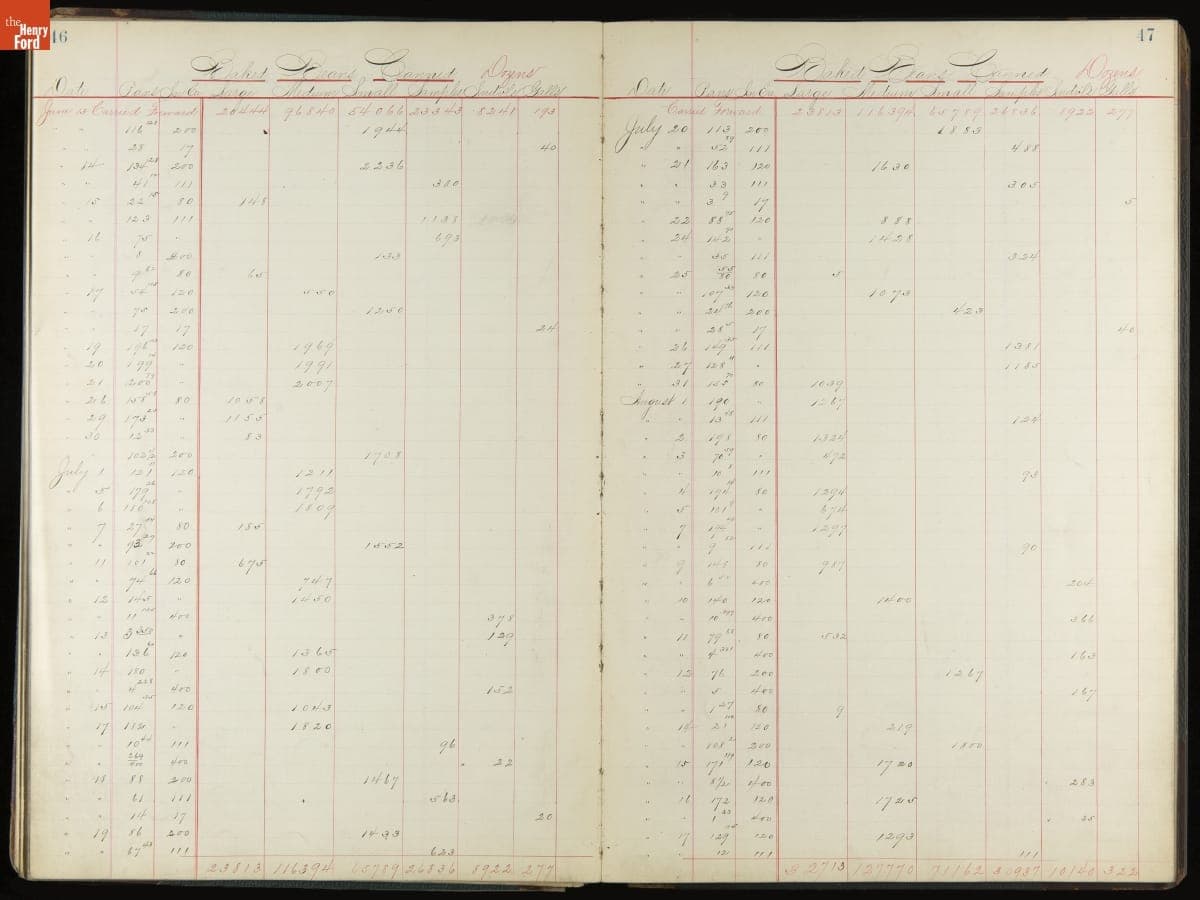 the
Henry
Ford
46
Baked Beans Canned Dozens
Date Pans In Ca Large Medium Small Sample
June 13 Carried Forward 20444 96840 54066 23343 8241 193
" " 116 200 1944
" " 28 17 40
" 14 134 200 2236
" " 41 111 380
" 15 22 80 148
" " 123 111 1138
" 16 75 " 693
" " 8 200 133
" " 9 80 65
" 17 54 120 550
" " 75 200 1250
" " 17 17 24
" 19 196 120 1969
" 20 199 " 1991
" 21 200 " 2007
" 26 158 80 1058
" 29 173 " 1155
" 30 12 " 83
102 200 1708
July 1 121 120 1211
" 5 179 " 1792
" 6 180 " 1809
" 7 27 80 185
" " 93 200 1552
" 11 101 80 675
" " 74 120 747
" 12 145 " 1450
" " 11 400 378
" 13 3 " 129
" " 136 120 1365
" 14 180 " 1800
" " 4 400 152
" 15 104 120 1043
" 17 182 " 1820
" " 10 111 96
" " 264/400 400 22
" 18 88 200 1467
" " 61 111 563
" " 14 17 20
" 19 86 200 1433
" " 67 111 623
23813 116394 65789 26836 8922 277
47
Baked Beans Canned Dozens
Date Pans In Ca Large Medium Small Sample
Carried Forward 23813 116394 65789 26836 8922 277
July 20 113 200 1883
" " 52 111 488
" 21 163 120 1630
" " 33 111 305
" " 3 17 5
" 22 88 120 888
" 24 142 " 1428
" " 35 111 324
" 25 55/80 80 5
" " 107 120 1073
" " 24 200 423
" " 28 17 40
" 26 149 111 1381
" 27 128 " 1185
" 31 155 80 1039
August 1 190 " 1267
" " 13 111 124
" 2 198 80 1324
" 3 70 " 472
" " 10 111 93
" 4 194 80 1294
" 5 101 " 674
" 7 194 " 1297
" " 9 111 90
" 9 148 80 987
" " 6 400 204
" 10 140 120 1400
" " 10 400 366
" 11 79 80 532
" " 4 400 163
" 12 76 200 1267
" " 5 400 167
" " 1 80 9
" 14 21 120 219
" " 108 200 1800
" 15 171 120 1720
" " 8 1/2 400 283
" 16 172 120 1725
" " 1 400 35
" 17 129 120 1293
" " 12 111 111
32713 127770 71162 30937 10140 322